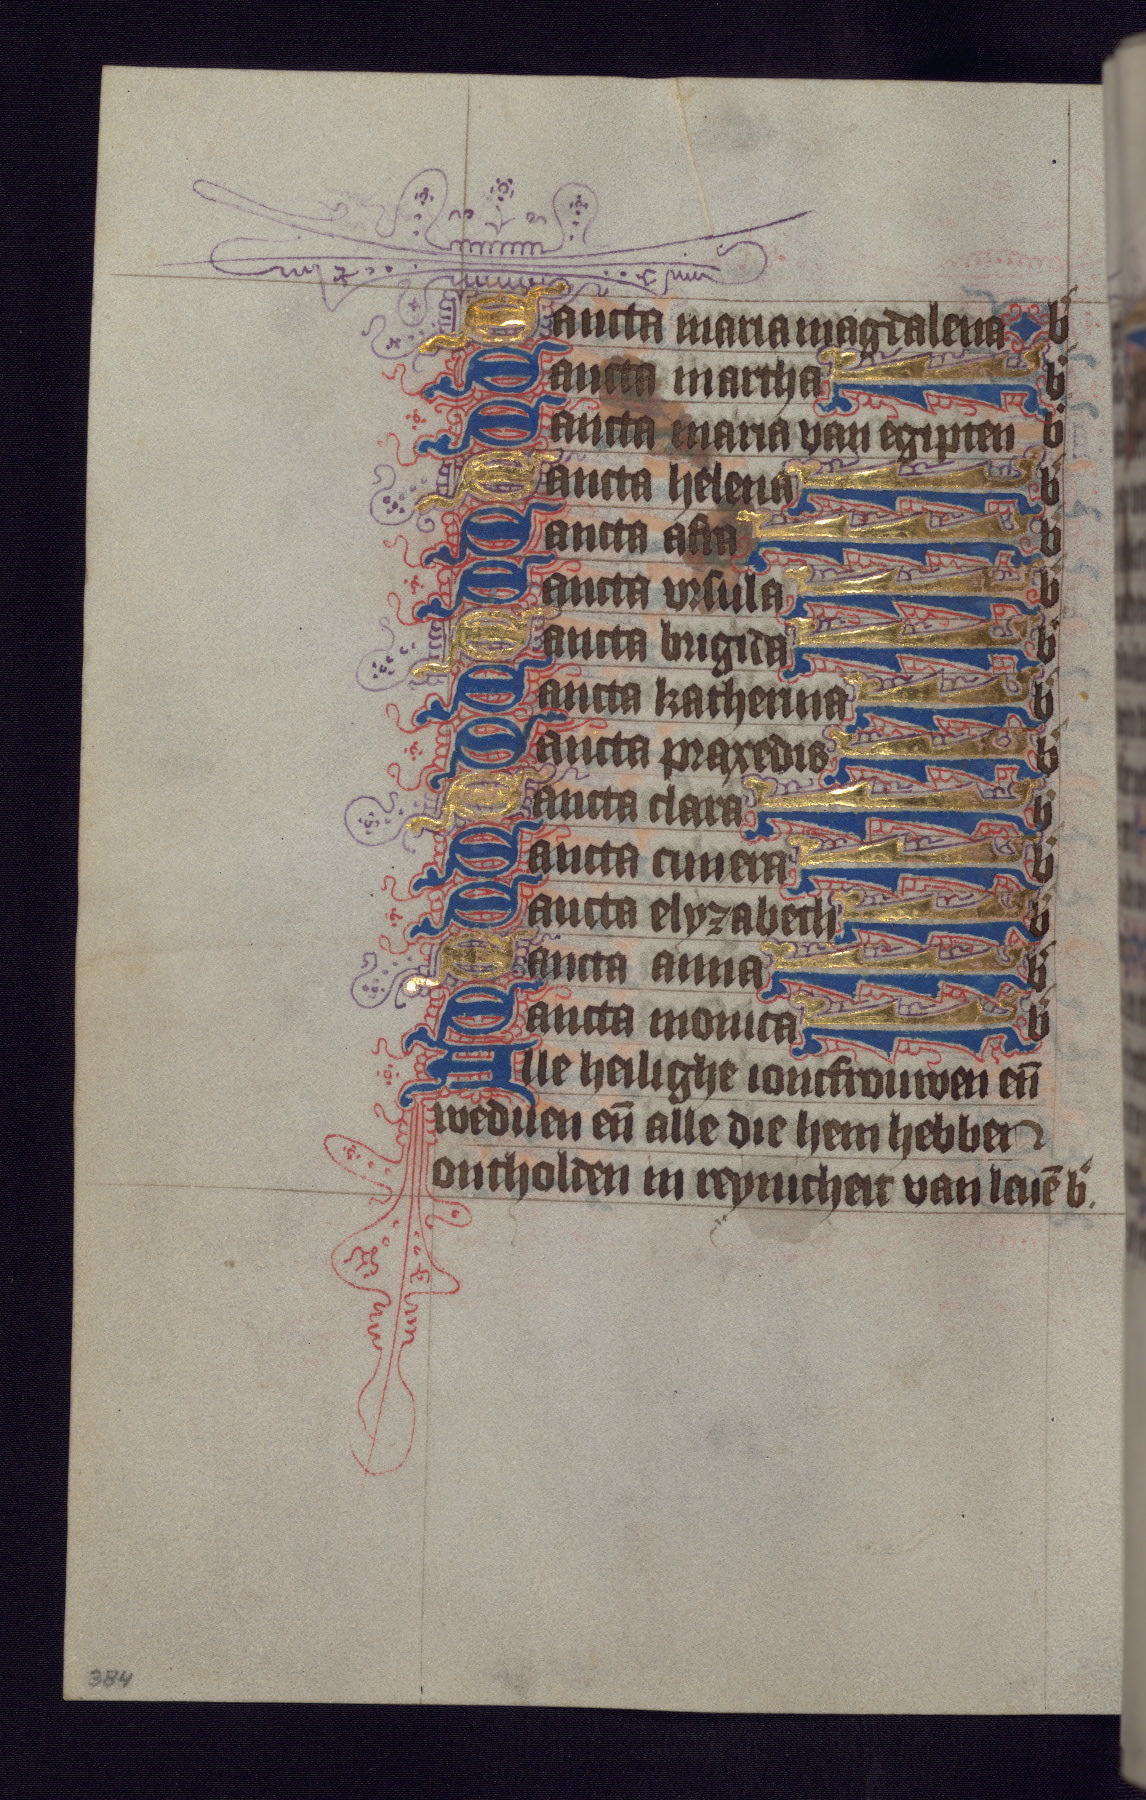 Sancta maria magdalena b
Sancta martha b
Sancta maria van egipten b
Sancta helena b
Sancta afra b
Sancta vrsula b
Sancta brigida b
Sancta katherina b
Sancta praxedis b
Sancta clara b
Sancta cunera b
Sancta elyzabeth b
Sancta anna b
Sancta monica b
Alle heilighe ioncfrouwen eñ
weduen eñ alle die hem hebben
ontholden in reynicheit van leuē b.
384